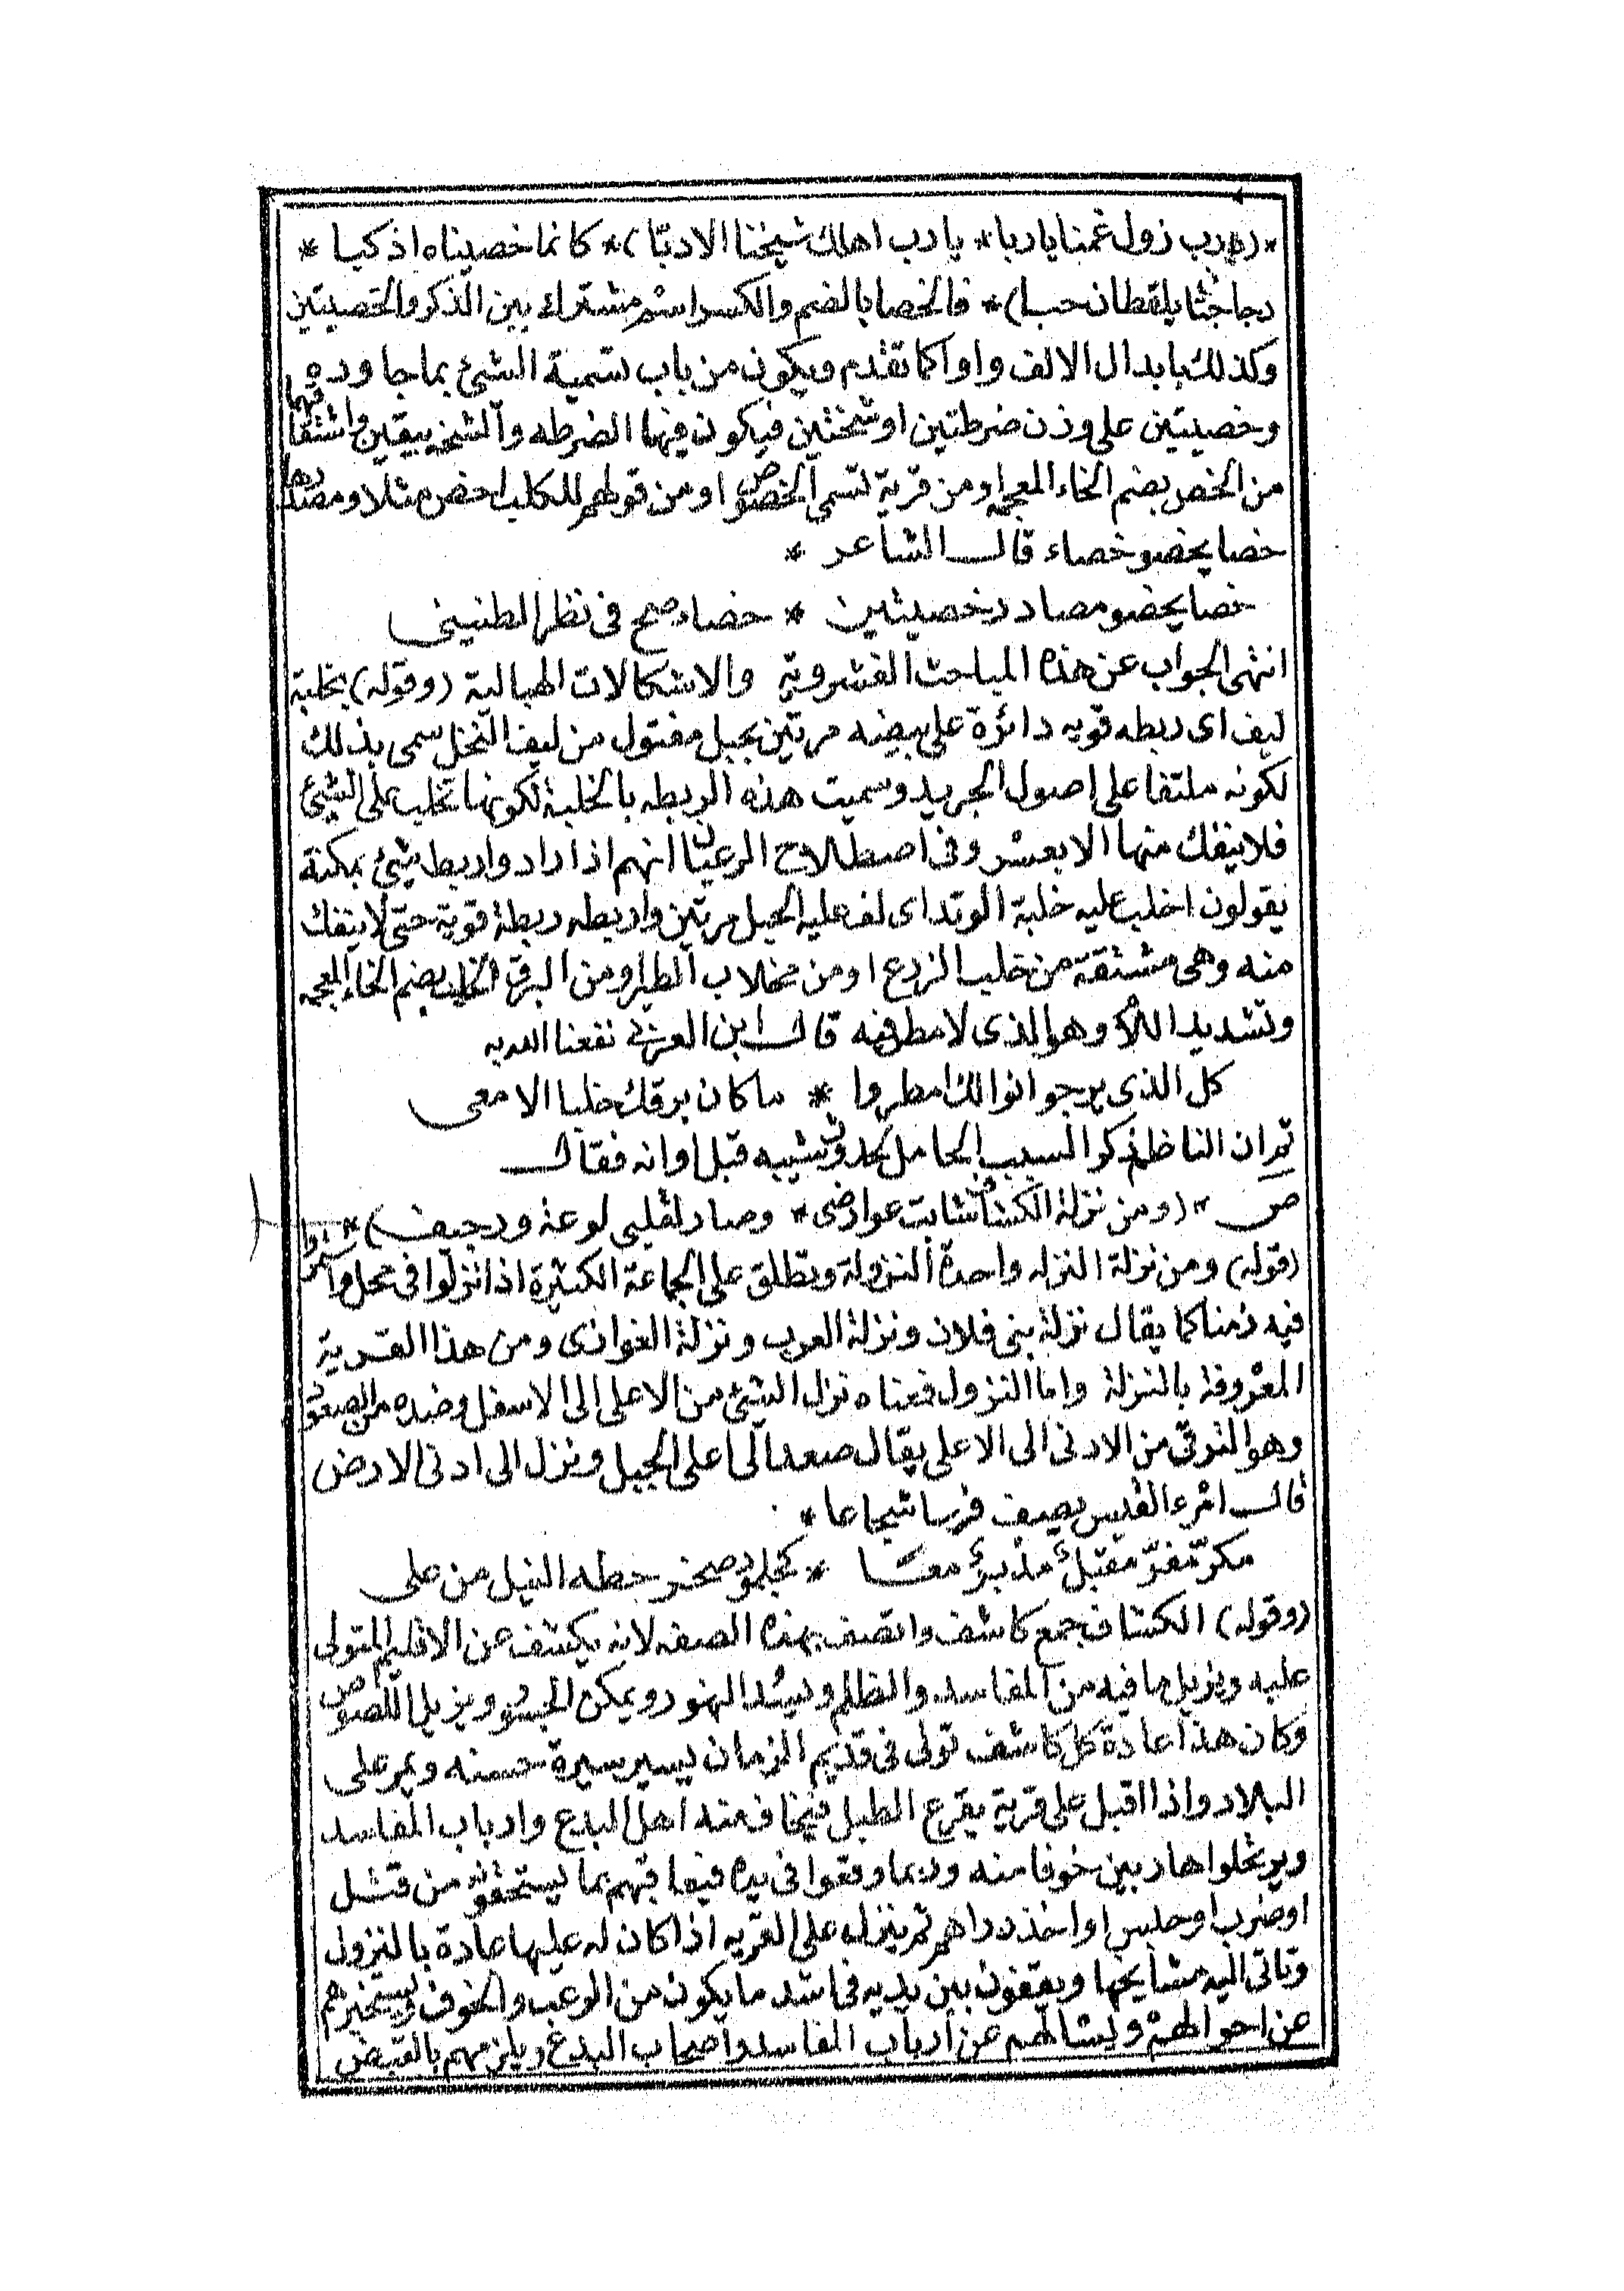 *(يارب زول غمنا ياربا* يارب اهلك شيخنا الادبّا)* كانما خصيتاه اذ كبا *
دجاجتا يلقطان حبا)* فالخصا بالضم والكسر اسم مشترك بين الذكر والخصيتين
وكذلك بابدال الالف واوا كما تقدم ويكون من باب تسمية الشئ بما جاوره
وخصيتين على وزن ضرطتين او شختين فيكون فيهما الضرطه والشخه بيقين واشتقاقهما
من الخص بضم الخاء المعجمه او من قرية تسمى الخصوص او من قولهم للكلب اخص مثلا ومصدرها
خصا يخصو خصاء قال الشاعر *
خصا يخصو مصادر خصيتين * خصاء صح فى نظر الطنينى
انتهى الجواب عن هذه المباحث الفشرويه والاشكالات الهبالية (وقوله) بخلبة
ليف اى ربطه قويه دائرة على بيضه مرتين بحبل مفتول من ليف النخل سمى بذلك
لكونه ملتفا على اصول الجريد وسميت هذه الربطه بالخلبة لكونها تخلب على الشئ
فلا ينفك منها الا بعسر وفى اصطلاح الرعيان انهم اذا ارادوا ربط شئ بمكنة
يقولون اخلب عليه خلبة الوتد اى لف عليه الحبل مرتين واربطه ربطة قوية حتى لا ينفك
منه وهى مشتقة من خلب الزرع او من مخلاب الطير او من البرق الخلب بضم الخاء المعجمه
وتشديد اللام وهو الذى لا مطر فيه قال ابن العربى نفعنا الله به
كل الذى يرجوا نوالك امطروا * ما كان برقك خلبا الا معى
ثم ان الناظم ذكر السبب الحامل لحدوث شيبه قبل اوانه فقال
ص *(ومن نزلة الكشاف شابت عوارضى* وصار لقلبى لوعة ورجيف)*
(قوله) ومن نزلة النزله واحدة النزولة وتطلق على الجماعة الكثيرة اذا نزلوا فى محل واستمروا
فيه زمنا كما يقال نزلة بنى فلان ونزلة العرب ونزلة الغوازى ومن هذا القرية
المعروفة بالنزلة واما النزول فمعناه نزل الشئ من الاعلى الى الاسفل وضده من الصعود
وهو الترقى من الادنى الى الاعلى يقال صعد الى اعلى الجبل ونزل الى ادنى الارض
قال امرء القيس يصف فرسا شجاعا *
مكرّ مفرّ مقبل مدبر معا * كجلمود صخر حطه السيل من على
(وقوله) الكشاف جمع كاشف واتصف بهذه الصفه لانه يكشف عن الاقليم المتولى
عليه ويزيل ما فيه من المفاسد والظلم ويسُد الهنود ويمكن الجسور ويزيل اللصوص
وكان هذا عادة كل كاشف تولى فى قديم الزمان يسير سيرة حسنه ويمر على
البلاد واذا اقبل على قرية يقرع الطبل فيخاف منه اهل البدع وارباب المفاسد
ويرتحلوا هاربين خوفا منه وربما وقعوا فى يده فيعاقبهم بما يستحقونه من قتل
او ضرب او حبس او اخذ دراهم ثم ينزل على القريه اذا كان له عليها عادة بالنزول
وتاتى اليه مشايخها ويقفون بين يديه فى اشد ما يكون من الرعب والخوف فيستخبرهم
عن احوالهم ويسالهم عن ارباب المفاسد واصحاب البدع ويلزمهم بالقبض